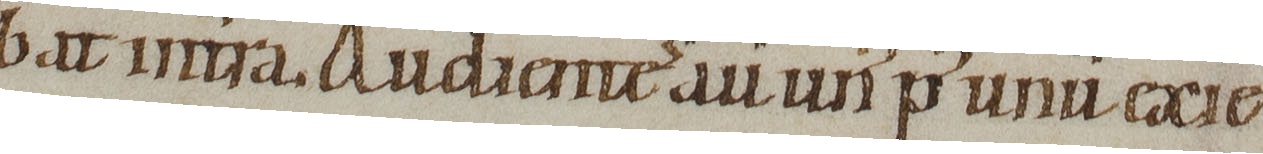 bat int̄ra. Audienteſ aū un᾽ p᾽ unū exie